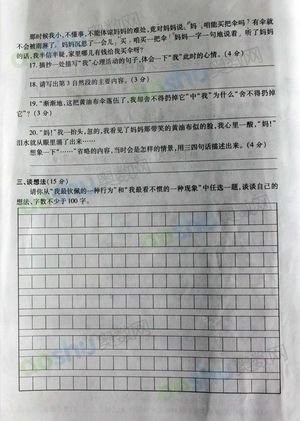 那时候我小,不懂事,不能体谅妈妈的难处,竟对妈妈说:“妈,咱能买把伞吗?有伞就
不会被雨淋了。妈妈沉思了一会儿,“买,咱买一把伞。”妈妈一字一句地说着,听了妈妈
的话,我半信半疑,家里哪儿有钱给我买伞呀?
17.摘抄一处描写“我”心理活动的句子,体会一下“我”此时的心情。(4分)
18.请写出第3自然段的主要内容。(3分)
19.“渐渐地,这把黄油布伞落伍了,我却舍不得扔掉它”中“我”为什么“舍不得扔掉
它”?(3分)
20.“妈!”我一抬头,忽的,我看见了妈妈那带笑的黄油布似的脸,我心里一酸,“妈!”
泪水就从眼里涌了出来……
想象一下“……”省略的内容,当时会是怎样的情景,用三四句话描述出来。(4分)
三、谈想法(15分)
请你从“我最钦佩的一种行为”和“我最看不惯的一种现象”中任选一题,谈谈自己的
想法,字数不少于100字。
aoshu奥数网